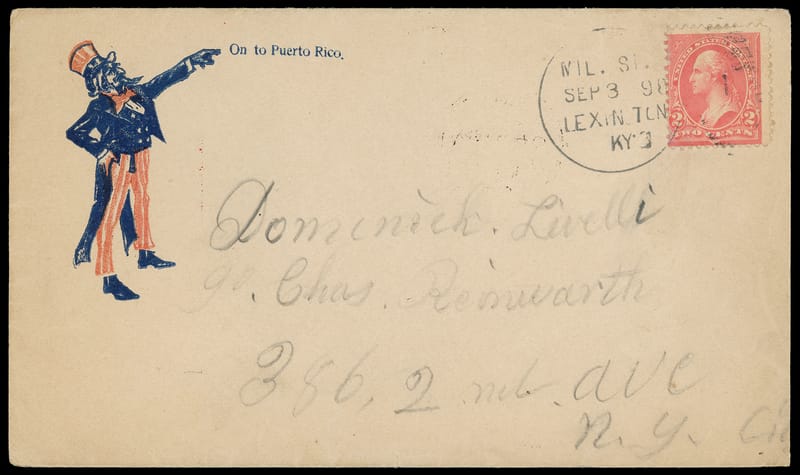 On to Puerto Rico.
MIL. ST.
SEP 3 98
LEXIN TON
KY.
UNITED STATES POSTAGE
2 2
TWO CENTS
Dominick. Livelli
Chas. Reinwarth
386, 2 nd. ave
N. y.